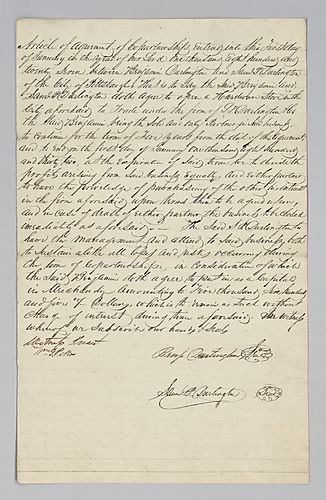 Article of Agreement of Copartnership, entered into this first day
of January in the year of our Lord one thousand eight hundred and
twenty seven between Benjamin Darlington and Saml P. Darlington
of the City of Pittsburgh. That is to say the Said Benjamin and
Saml P. Darlington doth agree to open a Hardware Store in the
City aforesaid, to trade under the firm of S. P. Darlington & Co
the Said Benjamin being the Sole and only Partner in the business
to continue for the term of five years from the date of this agreement
and to end on the first day of January one thousand, eight hundred
and thirty two, at the expiration of Said term to divide the
profits arising from Said business equally, And either partner
to have the privilege of purchasing of the other his interest
in the firm aforesaid, upon terms to be agreed upon,
and in case of death of either partner the business to be closed
immediately as aforesaid,— The Said S. P. Darlington to
have the management and attend to Said business, both
to sustain alike all losses and risks occurring during
the term of Copartnership, in consideration of which
the Said Benjamin doth agree to put in as a Capital
in Merchandize Amounting to five thousand five hundred
and five Dollars, which is to remain as such without
Charge of interest during time aforesaid. In witness
whereof we Subscribe our hands & Seals
Witness present
Benjn Darlington Seal
Saml P. Darlington Seal